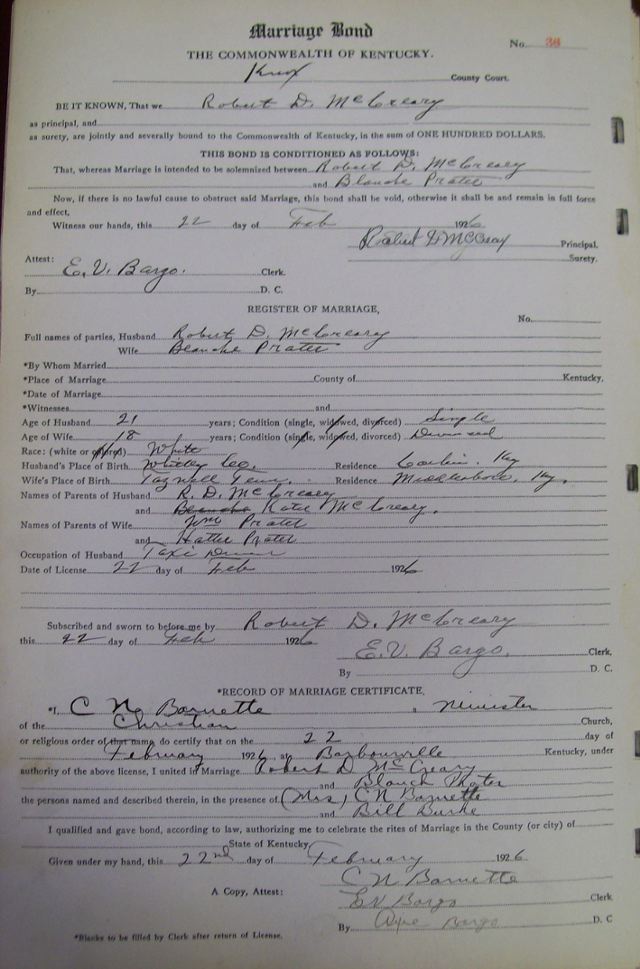 Marriage Bond
No. 38
THE COMMONWEALTH OF KENTUCKY.
Knox County Court.
BE IT KNOWN, That we Robert D. McCreary
as principal, and
as surety, are jointly and severally bound to the Commonwealth of Kentucky, in the sum of ONE HUNDRED DOLLARS.
THIS BOND IS CONDITIONED AS FOLLOWS:
That, whereas Marriage is intended to be solemnized between Robert D. McCreary
and Blanche Prater
Now, if there is no lawful cause to obstruct said Marriage, this bond shall be void, otherwise it shall be and remain in full force
and effect,
Witness our hands, this 22 day of Feb 1926
Robert D McCreay Principal.
Surety.
Attest:
E. V. Bargo. Clerk.
By D. C.
REGISTER OF MARRIAGE,
No.
Full names of parties, Husband Robert D. McCreary
Wife Blanche Prater
*By Whom Married
*Place of Marriage County of Kentucky,
*Date of Marriage
*Witnesses and
Age of Husband 21 years; Condition (single, widowed, divorced) Single
Age of Wife 18 years; Condition (single, widowed, divorced) Divorced
Race: (white or colored) White
Husband's Place of Birth Whitley Co. Residence Corbin. Ky
Wife's Place of Birth Tazwell Tenn. Residence Middlesboro, Ky.
Names of Parents of Husband R. D. McCreary
and Blanche Kater McCreary.
Names of Parents of Wife Wm Prater
and Hattie Prater
Occupation of Husband Taxi Driver
Date of License 22 day of Feb 1926
Subscribed and sworn to before me by Robert D. McCreary
this 22 day of Feb 1926
E. V. Bargo. Clerk,
By D. C.
*RECORD OF MARRIAGE CERTIFICATE,
*I, C N Barnette a Minister
of the Christian Church,
or religious order of that name, do certify that on the 22 day of
February 1926, at Barbourville Kentucky, under
authority of the above license, I united in Marriage Robert D McCreary
and Blanch Prater
the persons named and described therein, in the presence of (Mrs) C N Barnette
and Bill Burke
I qualified and gave bond, according to law, authorizing me to celebrate the rites of Marriage in the County (or city) of
State of Kentucky
Given under my hand, this 22nd day of February 1926
C N Barnette
A Copy, Attest: E V Bargo Clerk
By Bargo D. C
*Blanks to be filled by Clerk after return of License.